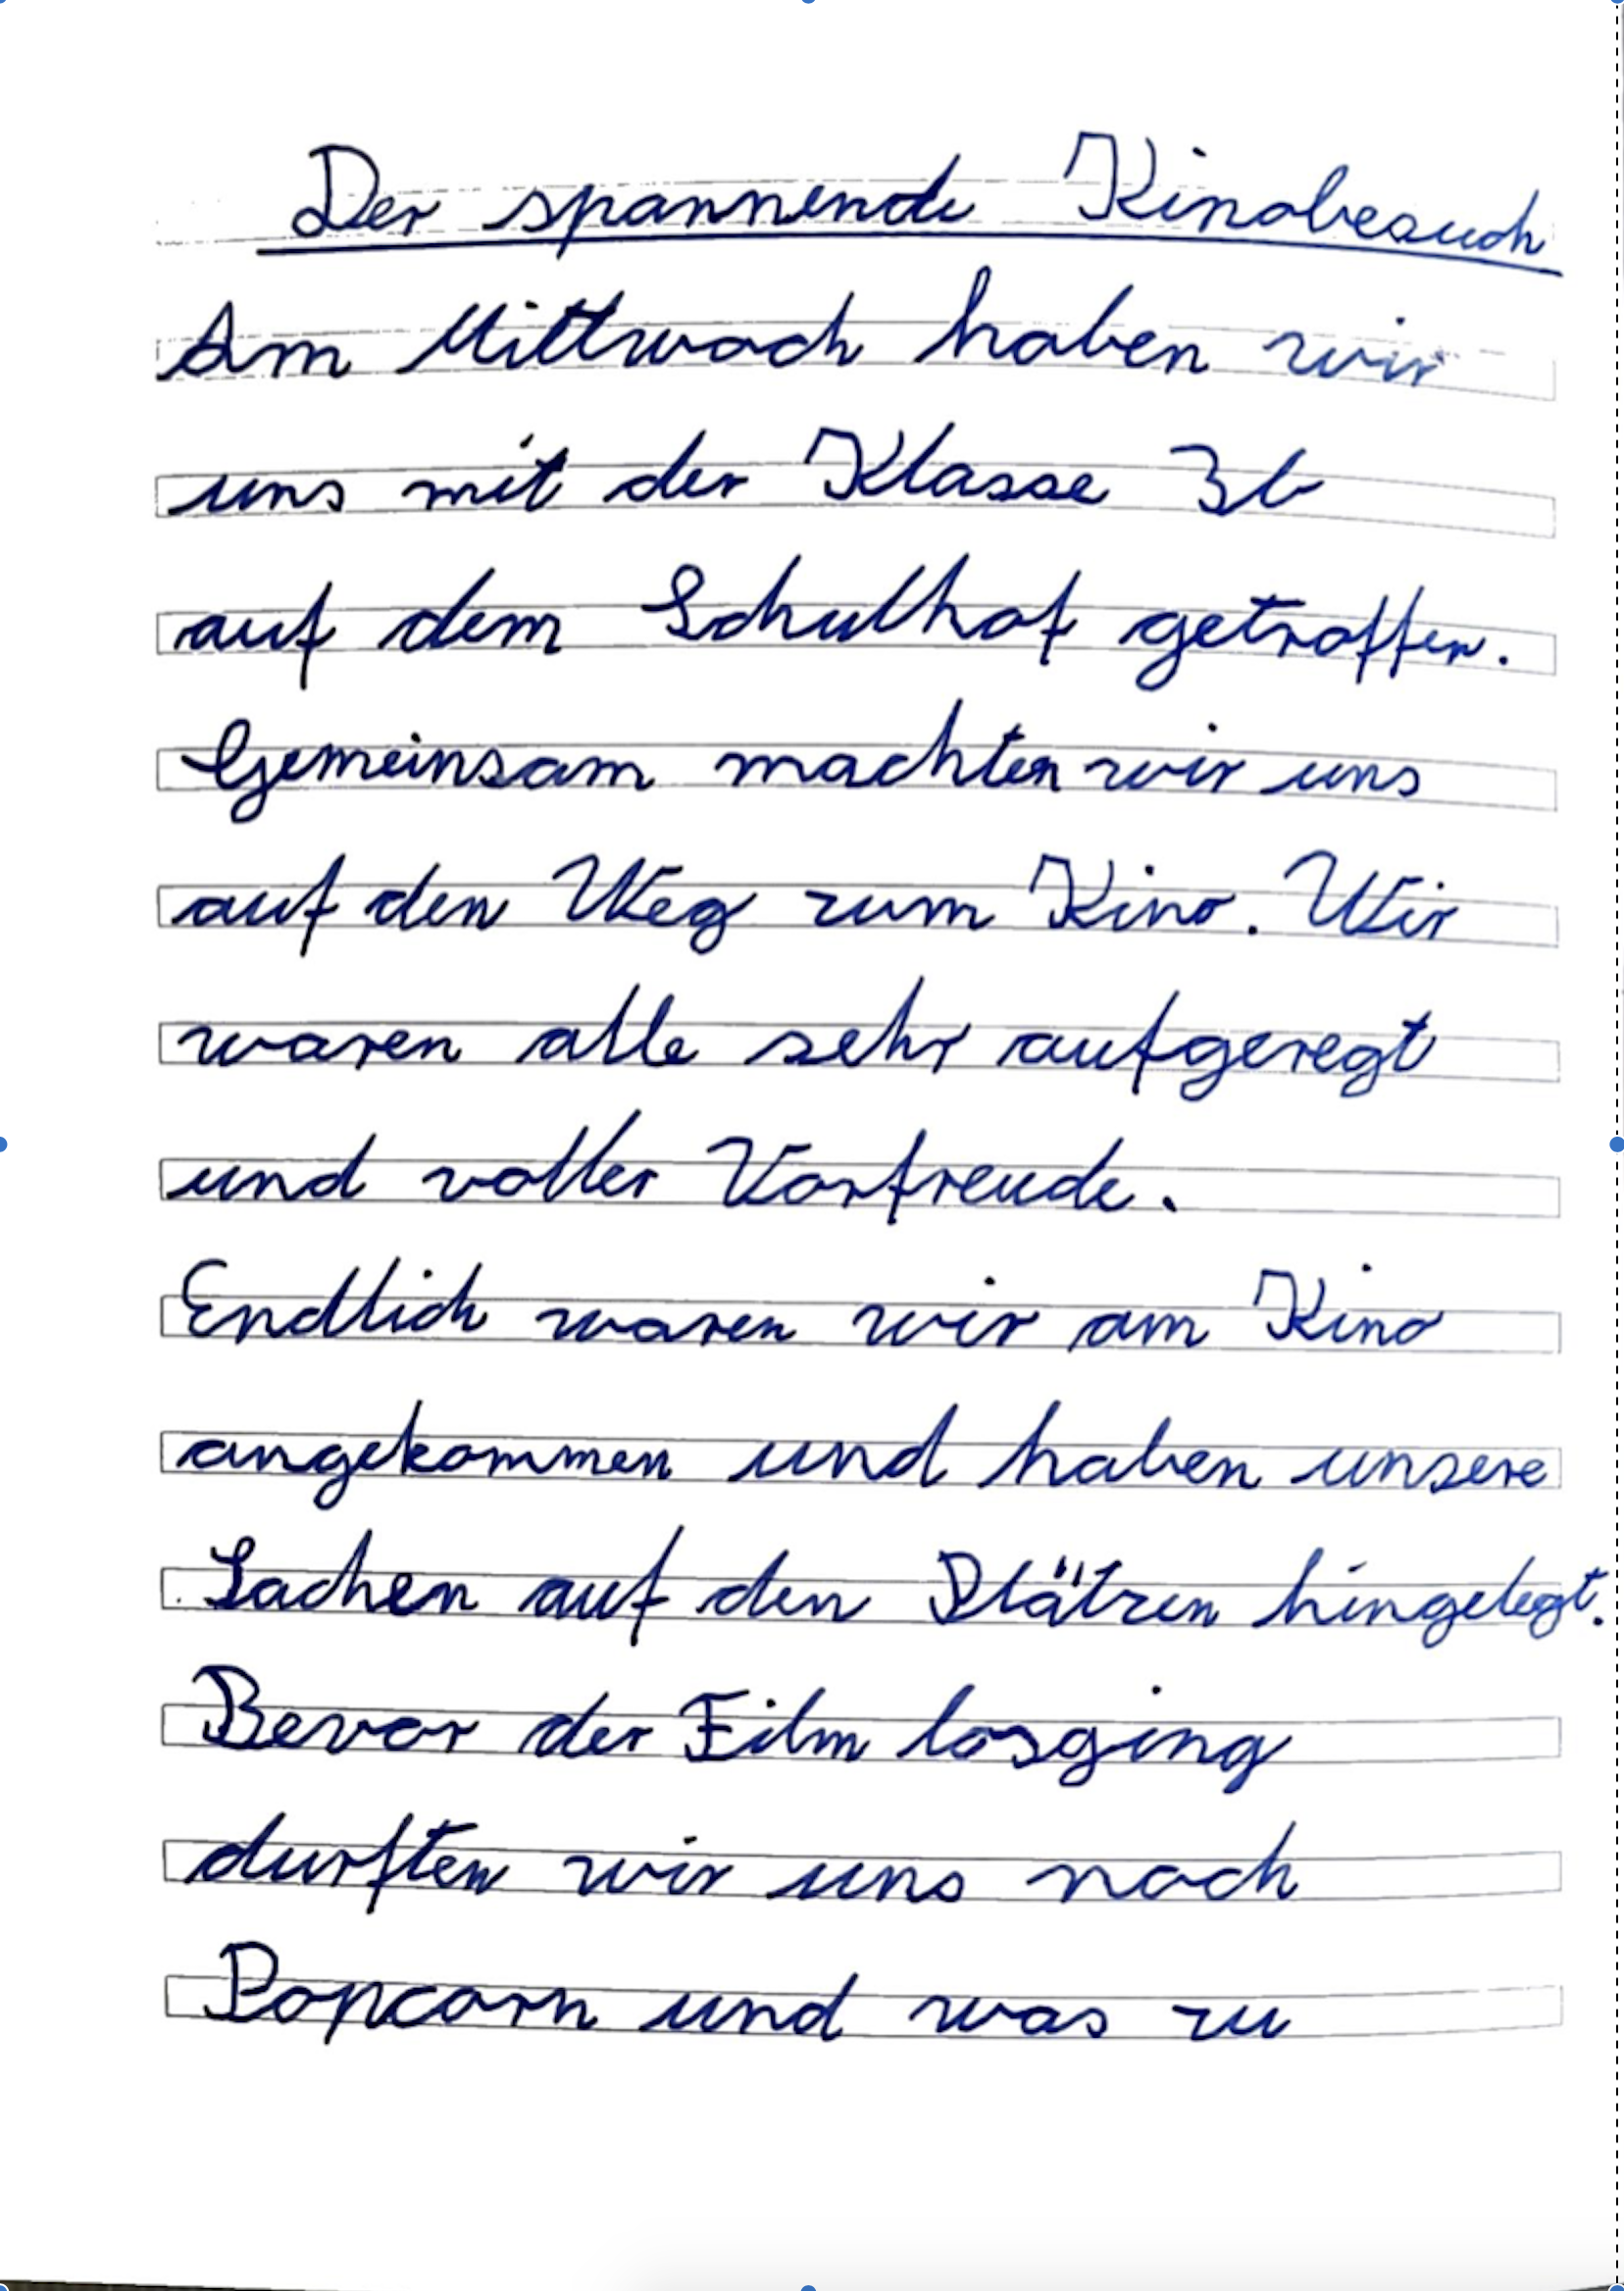 Der spannende Kinobesuch
Am Mittwoch haben wir
uns mit der Klasse 3b
auf dem Schulhof getroffen.
Gemeinsam machten wir uns
auf den Weg zum Kino. Wir
waren alle sehr aufgeregt
und voller Vorfreude.
Endlich waren wir am Kino
angekommen und haben unsere
Sachen auf den Plätzen hingelegt.
Bevor der Film losging
durften wir uns noch
Popcorn und was zu